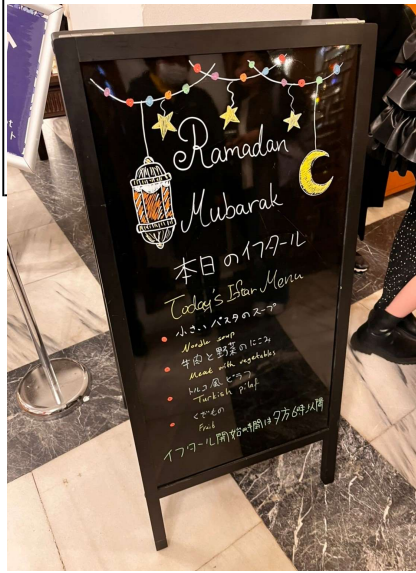 Ramadan
Mubarak
本日のイフタール
Today's Iftar Menu
小さいパスタのスープ
Noodle soup
牛肉と野菜のにこみ
Meat with vegetables
トルコ風ピラフ
Turkish pilaf
くだもの
Fruit
イフタール開始時間は夕方6時以降